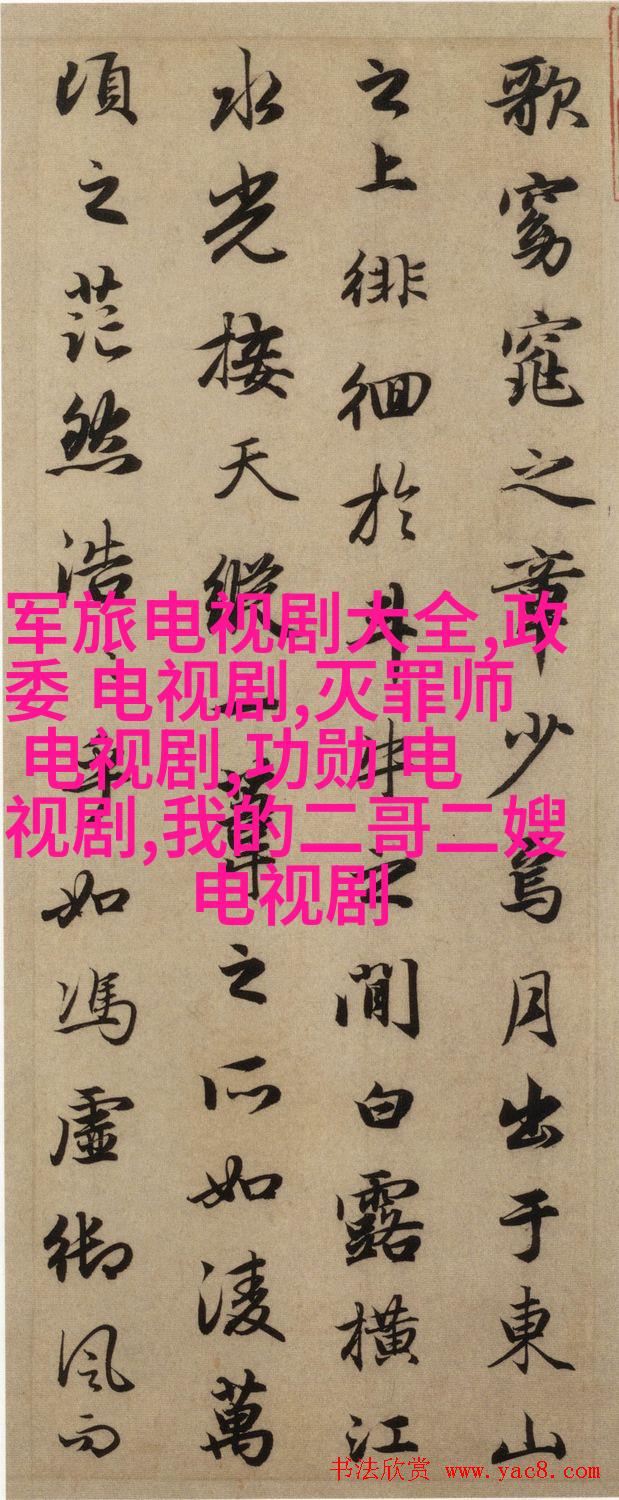 歌窈窕之章少焉月出于東山
之上徘徊於斗牛之間白露橫江
水光接天縱一葦之所如淩萬
頃之茫然浩乎如馮虛御風而
军旅电视剧大全,政
委 电视剧,灭罪师
电视剧,功勋 电
视剧,我的二哥二嫂
电视剧
书法欣赏 www.yac8.com